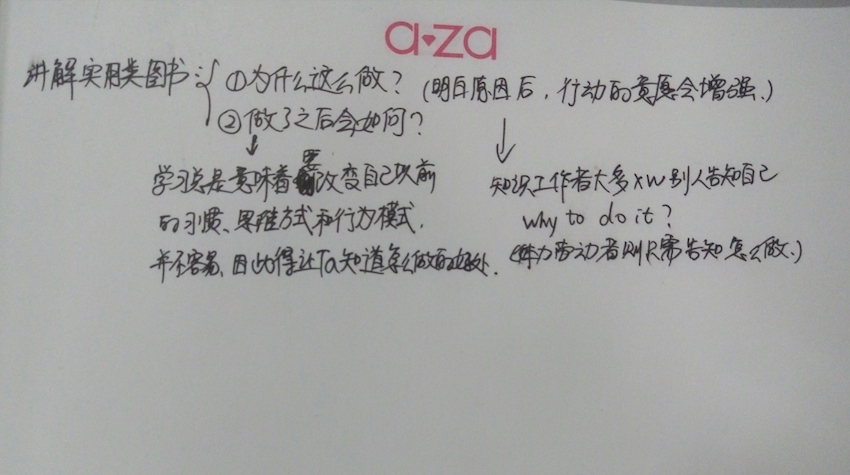 a·za
讲解实用类图书：{ ①为什么这么做？(明白原因后，行动的意愿会增强。)
②做了之后会如何？
学习总是意味着要改变自己以前
的习惯、思维方式和行为模式，
并不容易，因此得让Ta知道怎么做的好处。
知识工作者大多xw别人告知自己
why to do it?
(体力劳动者则只需告知怎么做。)